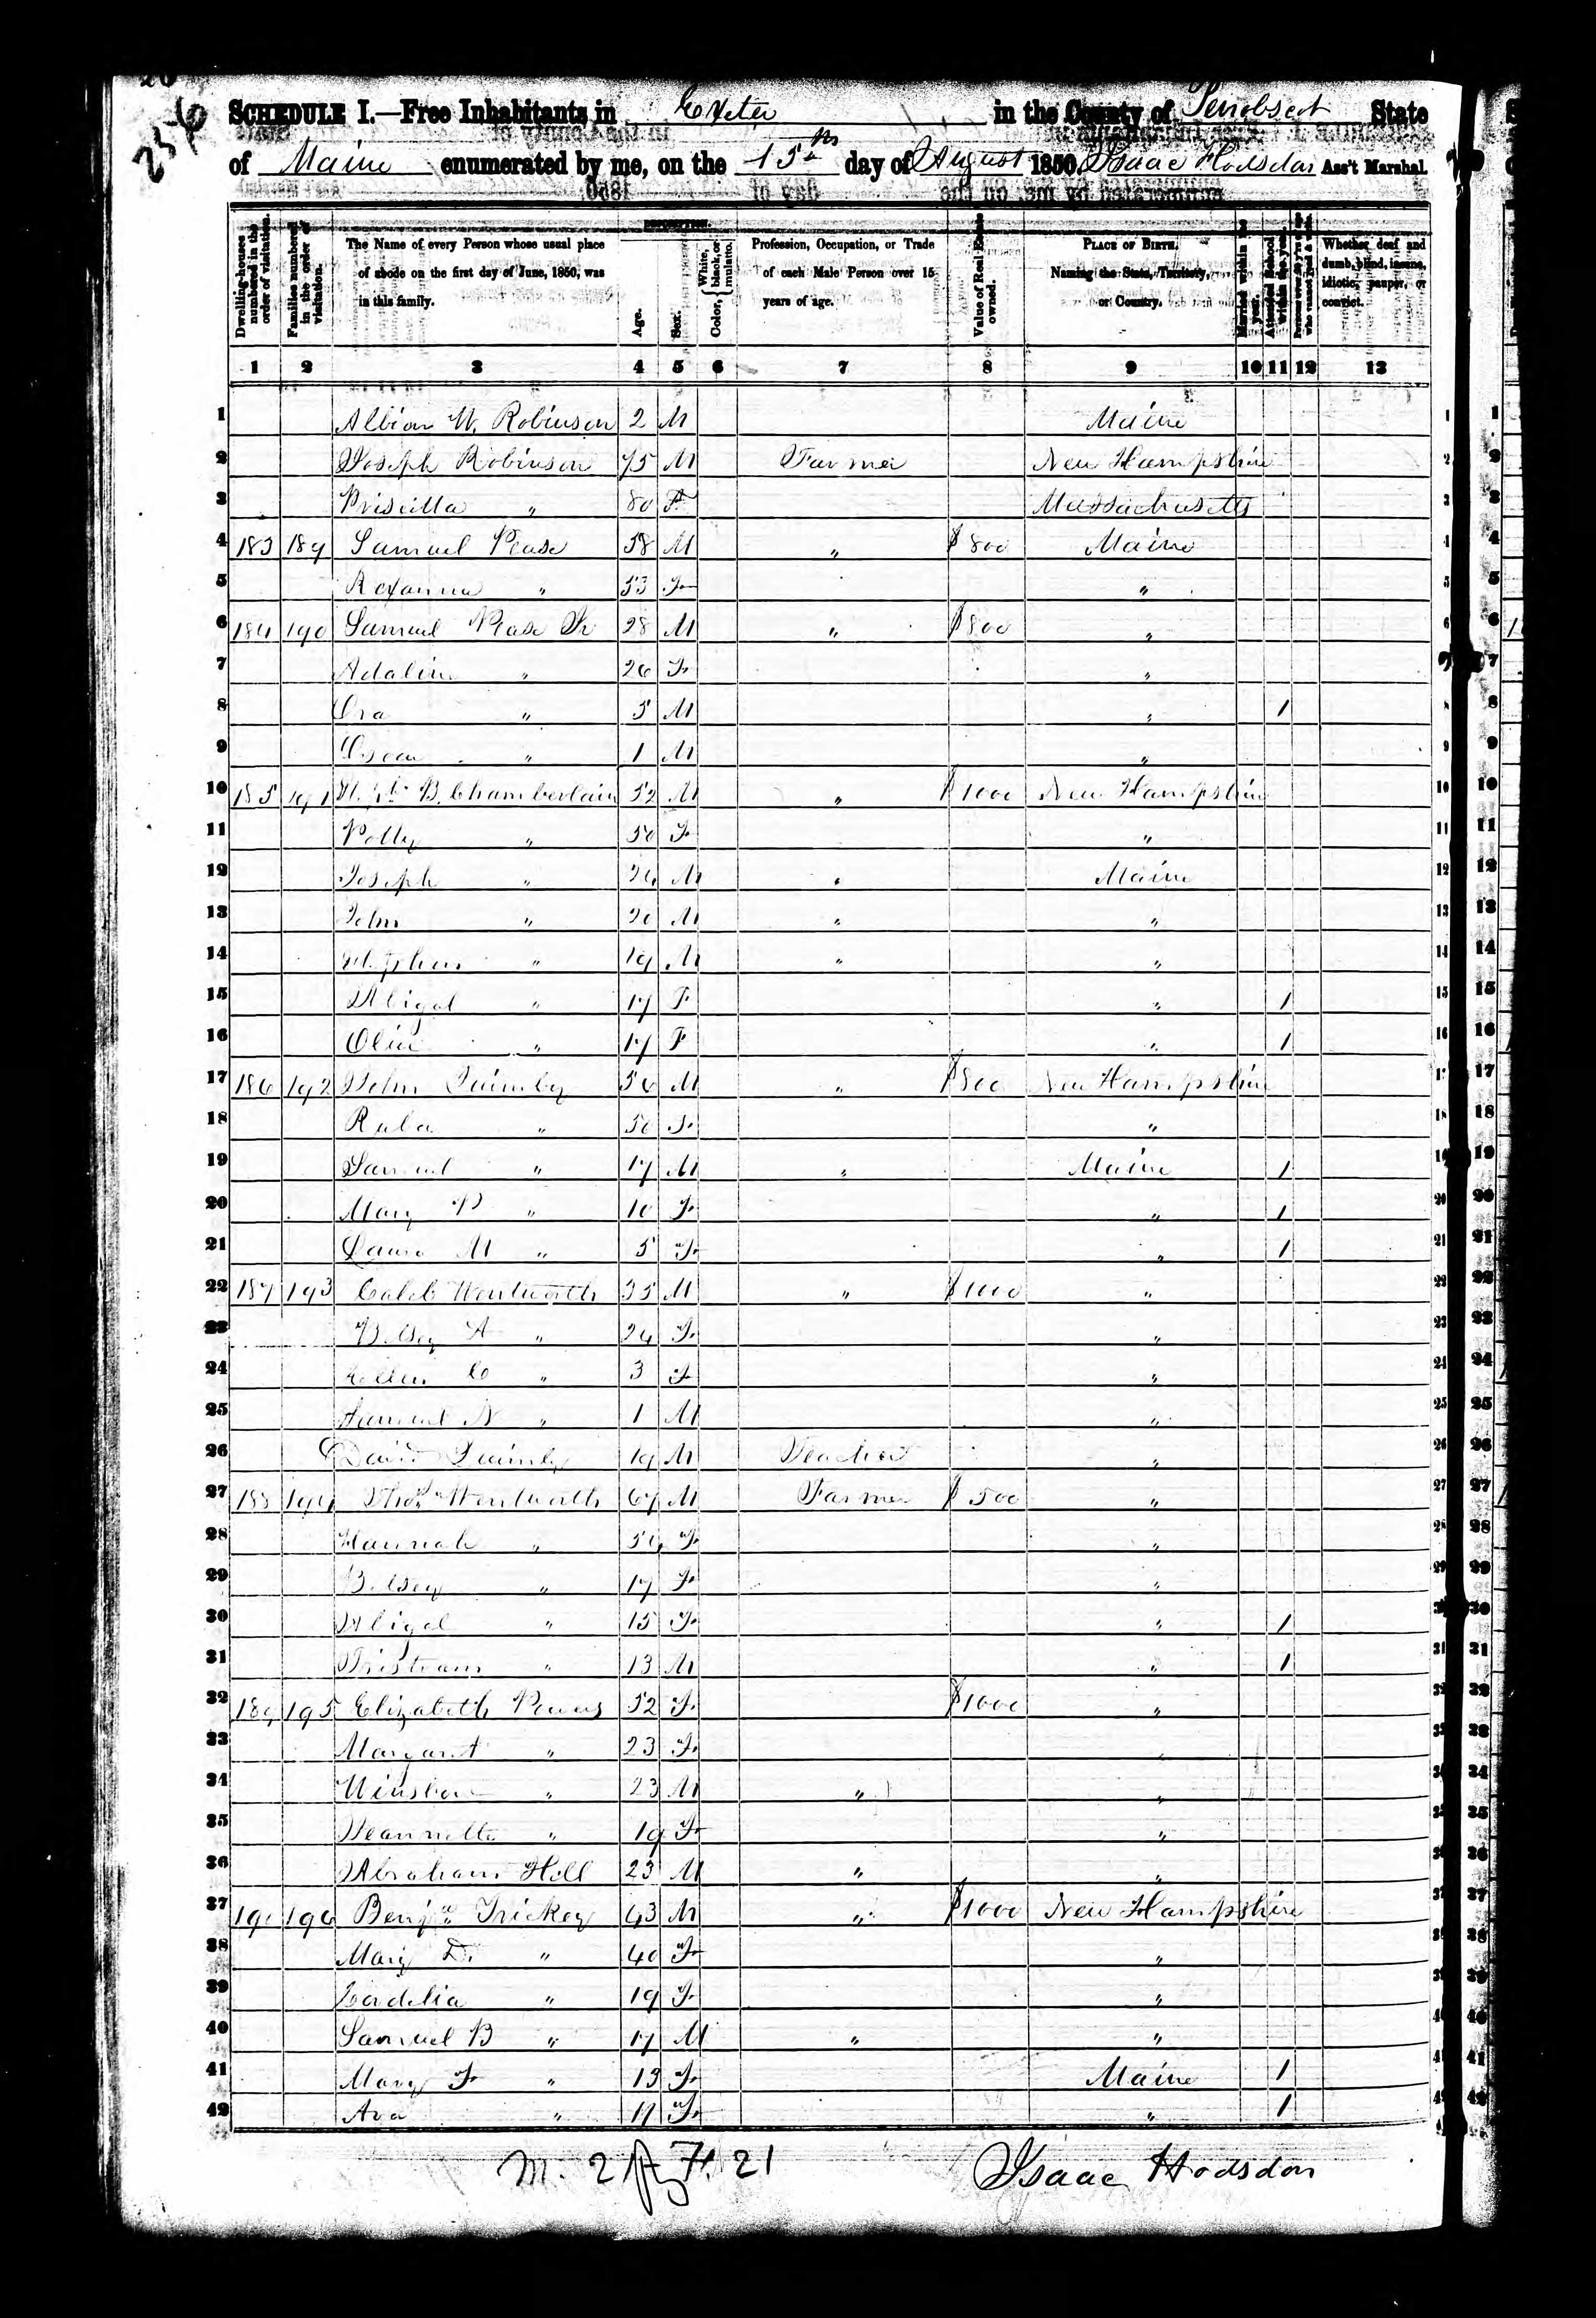 SCHEDULE I.—Free Inhabitants in Exeter in the County of Penobscot State
of Maine enumerated by me, on the 15th day of August 1850. Isaac Hodsdon Ass't Marshal.
Dwelling-houses numbered in the order of visitation.
Families numbered in the order of visitation.
The Name of every Person whose usual place of abode on the first day of June, 1850, was in this family.
DESCRIPTION.
Age.
Sex.
Color, { White, black, or mulatto.
Profession, Occupation, or Trade of each Male Person over 15 years of age.
Value of Real Estate owned.
PLACE OF BIRTH. Naming the State, Territory, or Country.
Married within the year.
Attended School within the year.
Persons over 20 y'rs of age who cannot read & write.
Whether deaf and dumb, blind, insane, idiotic, pauper, or convict.
1 2 3 4 5 6 7 8 9 10 11 12 13
1 Albion W. Robinson 2 M Maine
2 Joseph Robinson 75 M Farmer New Hampshire
3 Priscilla " 80 F Massachusetts
4 183 189 Samuel Pease 58 M " $800 Maine
5 Roxanna " 53 F "
6 184 190 Samuel Pease Jr 28 M " $800 "
7 Adaline " 26 F "
8 Ora " 5 M " 1
9 Oscar " 1 M "
10 185 191 B. Chamberlain 52 M " $1000 New Hampshire
11 Polly " 50 F "
12 Joseph " M " Maine
13 John " M " "
14 Stephen " 19 M " "
15 Abigal " 17 F " 1
16 Olive " 17 F " 1
17 186 192 John Quimby 56 M " $800 New Hampshire
18 " 50 F "
19 Samuel " 17 M " Maine 1
20 Mary P " 10 F " 1
21 Laura M " 5 F " 1
22 187 193 Caleb Wentworth 35 M " $1000 "
23 Betsey A " 24 F "
24 Ellen C " 3 F "
25 Samuel N " 1 M "
26 David Quimby 19 M Teacher "
27 188 194 Thos Wentworth 67 M Farmer $500 "
28 Hannah " F "
29 Betsey " 17 F "
30 Abigal " 15 F " 1
31 Tristram " 13 M " 1
32 189 195 Elizabeth Powers 52 F $1000 "
33 Margaret " 23 F "
34 Winslow " 23 M " "
35 Jeannette " 19 F "
36 Abraham Hill 23 M " "
37 190 196 Benjn Trickey 43 M " $1000 New Hampshire
38 Mary D. " 40 F "
39 Cordelia " 19 F "
40 Samuel B " 17 M " "
41 Mary F " 13 F Maine 1
42 " 11 F " 1
M. 21 F. 21 Isaac Hodsdon